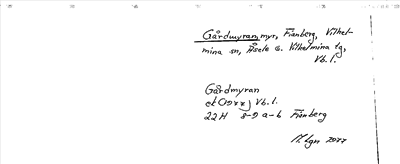 Gårdmyran, myr, Fianberg, Vilhel-
mina sn, Åsele o. Vilhelmina tg,
Vb. l.
Gårdmyran
Vb. l.
22H 8-9 a-b Fianberg